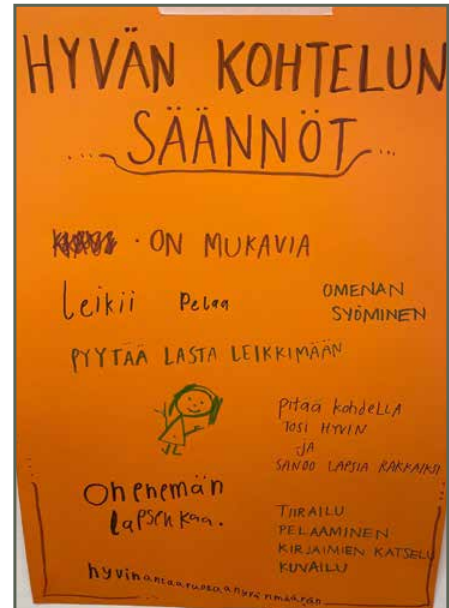 HYVÄN KOHTELUN
SÄÄNNÖT
· ON MUKAVIA
Leikii Pelaa
OMENAN
SYÖMINEN
PYYTÄÄ LASTA LEIKKIMÄÄN
Pitää kohdella
TOSI HYVIN
JA
SANOO LAPSIA RAKKAIKSI
Oh enemän
lapsen kaa.
TIIRAILU
PELAAMINEN
KIRJAIMIEN KATSELU
KUVAILU